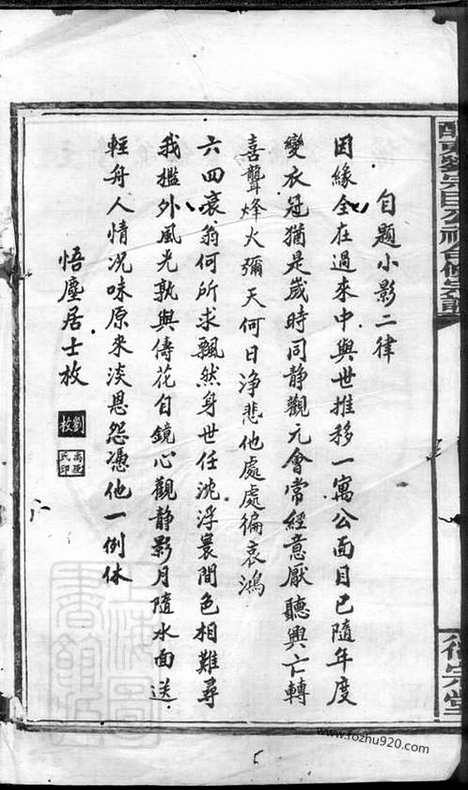 自題小影二律
因緣全在過來中與世推移一寓公面目已隨年度
變衣冠猶是歲時同靜觀元會常經意厭聽興亡轉
喜聾烽火彌天何日淨悲他處處徧哀鴻
六四衰翁何所求飄然身世任沈浮寰間色相難尋
我檻外風光孰與儔花自鏡心觀靜影月隨水面送
輕舟人情況味原來淡恩怨憑他一例休
悟塵居士枚
劉枚
氏印
德宗堂
www.fozhu920.com